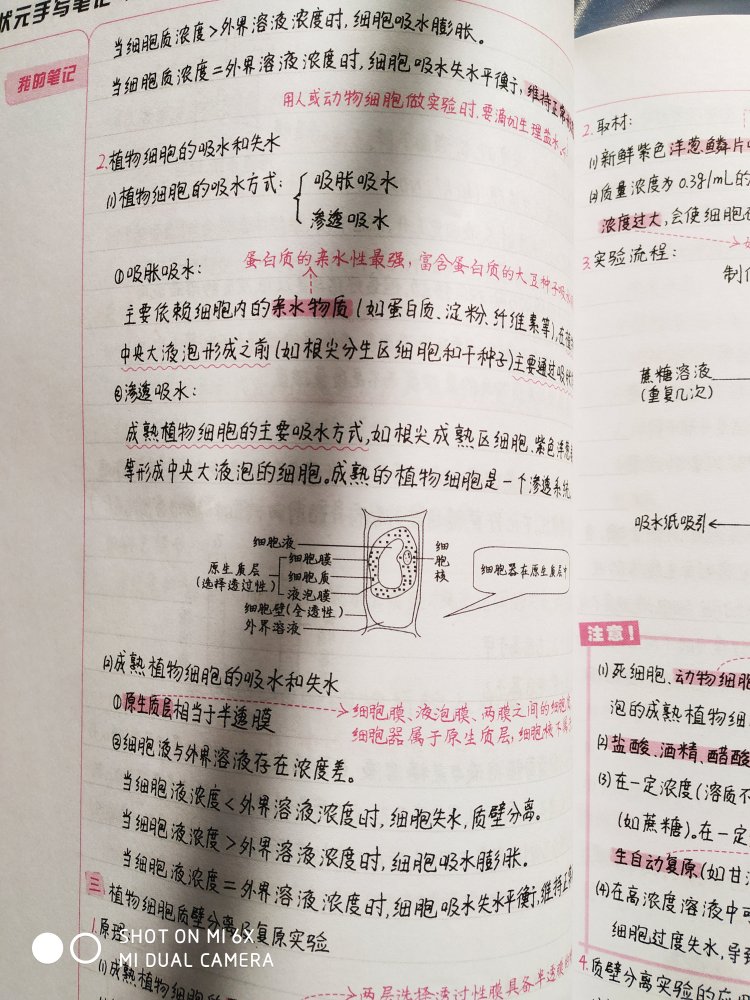 状元手写笔记
我的笔记
当细胞质浓度>外界溶液浓度时,细胞吸水膨胀。
当细胞质浓度=外界溶液浓度时,细胞吸水失水平衡,维持正常
用人或动物细胞做实验时,要滴加生理盐水,
2.植物细胞的吸水和失水
(1)植物细胞的吸水方式:
吸胀吸水
渗透吸水
蛋白质的亲水性最强,富含蛋白质的大豆种子吸水
①吸胀吸水:
主要依赖细胞内的亲水物质(如蛋白质、淀粉、纤维素等),在
中央大液泡形成之前(如根尖分生区细胞和干种子)主要通过吸
②渗透吸水:
成熟植物细胞的主要吸水方式,如根尖成熟区细胞、紫色洋葱
等形成中央大液泡的细胞。成熟的植物细胞是一个渗透系统
细胞液
原生质层
(选择透过性)
细胞膜
细胞质
液泡膜
细胞壁(全透性)
外界溶液
细胞核
细胞器在原生质层中
(2)成熟植物细胞的吸水和失水
①原生质层相当于半透膜
细胞膜、液泡膜、两膜之间的细胞
细胞器属于原生质层,细胞核不属
②细胞液与外界溶液存在浓度差。
当细胞液浓度<外界溶液浓度时,细胞失水,质壁分离。
当细胞液浓度>外界溶液浓度时,细胞吸水膨胀。
当细胞液浓度=外界溶液浓度时,细胞吸水失水平衡,维持正
三 植物细胞质壁分离及复原实验
1.原理:
(1)成熟植物细胞的
两层选择透过性膜具备半透膜的
2.取材:
(1)新鲜紫色洋葱鳞片
(2)质量浓度为0.3g/mL的
浓度过大,会使细胞
3.实验流程:
制作
蔗糖溶液
(重复几次)
吸水纸吸引
注意!
(1)死细胞、动物细胞
泡的成熟植物细
(2)盐酸、酒精、醋酸
(3)在一定浓度(溶质不
(如蔗糖)。在一定
生自动复原(如甘
(4)在高浓度溶液中可
细胞过度失水,导致
4.质壁分离实验的应用
SHOT ON MI 6X
MI DUAL CAMERA